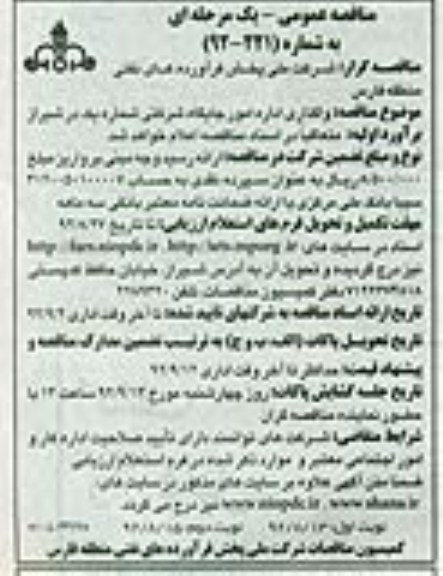 مناقصه عمومی - یک مرحله ای
به شماره (۲۲۱-۹۲)
مناقصه گزار: شرکت ملی پخش فرآورده های نفتی
منطقه فارس
موضوع مناقصه: واگذاری اداره امور جایگاه شرکتی شماره یک در شیراز
برآورد اولیه: متعاقبا در اسناد مناقصه اعلام خواهد شد
نوع و مبلغ تضمین شرکت در مناقصه: ارائه رسید وجه مبنی بر واریز مبلغ
ریال به عنوان سپرده نقدی به حساب
سیبا بانک ملی مرکزی یا ارائه ضمانت نامه معتبر بانکی سه ماهه
مهلت تکمیل و تحویل فرم های استعلام ارزیابی: تا تاریخ ۹۲/۸/۲۷
اسناد در سایت های http://iets.mporg.ir , http://fars.niopdc.ir
نیز درج گردیده و تحویل آن به آدرس شیراز، خیابان حافظ کدپستی
دفتر کمیسیون مناقصات، تلفن
تاریخ ارائه اسناد مناقصه به شرکتهای تایید شده: تا آخر وقت اداری ۹۲/۹/۲
تاریخ تحویل پاکات (الف، ب و ج) به ترتیب تضمین مدارک مناقصه و
پیشنهاد قیمت: حداکثر تا آخر وقت اداری ۹۲/۹/۱۲
تاریخ جلسه گشایش پاکات: روز چهارشنبه مورخ ۹۲/۹/۱۳ ساعت ۱۳ با
حضور نماینده مناقصه گران
شرایط متقاضی: شرکت های توانمند دارای تأیید صلاحیت اداره کار و
امور اجتماعی معتبر و موارد ذکر شده در فرم استعلام ارزیابی
ضمنا متن آگهی علاوه بر سایت های مذکور در سایت های:
www.niopdc.ir , www.shana.ir نیز درج می گردد.
نوبت اول: نوبت دوم: ۹۲/۸/۱۵
کمیسیون مناقصات شرکت ملی پخش فرآورده های نفتی منطقه فارس